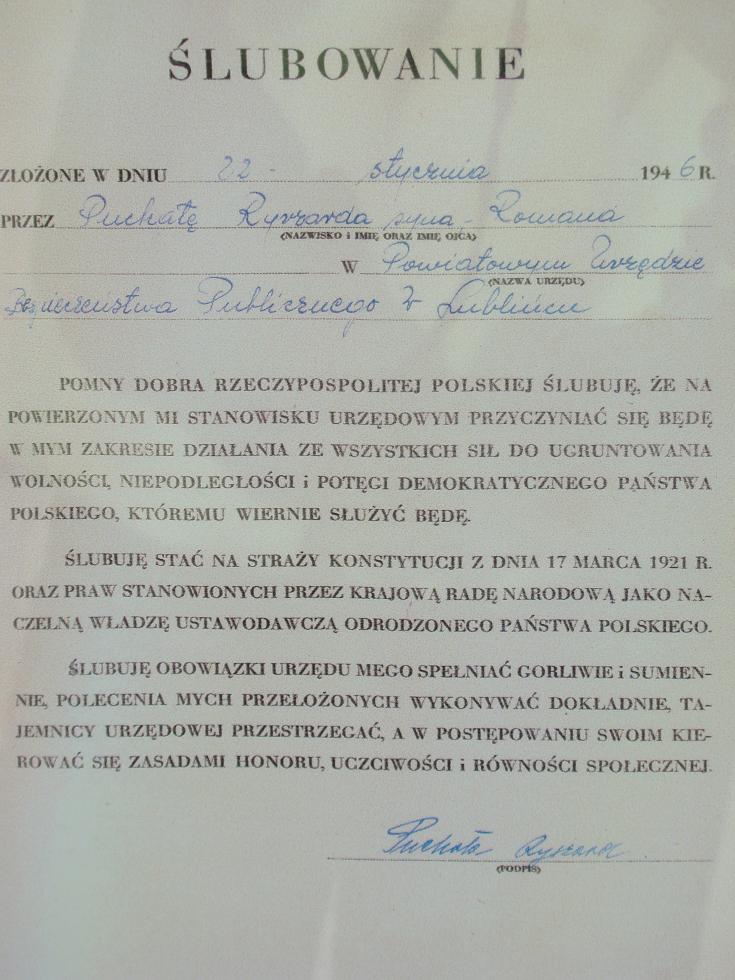 ŚLUBOWANIE
ZŁOŻONE W DNIU 22 - stycznia 1946 R.
PRZEZ Puchatę Ryszarda syna - Romana
(NAZWISKO i IMIĘ ORAZ IMIĘ OJCA)
W Powiatowym Urzędzie
(NAZWA URZĘDU)
Bezpieczeństwa Publicznego w Lublińcu
POMNY DOBRA RZECZYPOSPOLITEJ POLSKIEJ ŚLUBUJĘ, ŻE NA
POWIERZONYM MI STANOWISKU URZĘDOWYM PRZYCZYNIAĆ SIĘ BĘDĘ
W MYM ZAKRESIE DZIAŁANIA ZE WSZYSTKICH SIŁ DO UGRUNTOWANIA
WOLNOŚCI, NIEPODLEGŁOŚCI i POTĘGI DEMOKRATYCZNEGO PAŃSTWA
POLSKIEGO, KTÓREMU WIERNIE SŁUŻYĆ BĘDĘ.
ŚLUBUJĘ STAĆ NA STRAŻY KONSTYTUCJI Z DNIA 17 MARCA 1921 R.
ORAZ PRAW STANOWIONYCH PRZEZ KRAJOWĄ RADĘ NARODOWĄ JAKO NA-
CZELNĄ WŁADZĘ USTAWODAWCZĄ ODRODZONEGO PAŃSTWA POLSKIEGO.
ŚLUBUJĘ OBOWIĄZKI URZĘDU MEGO SPEŁNIAĆ GORLIWIE i SUMIEN-
NIE, POLECENIA MYCH PRZEŁOŻONYCH WYKONYWAĆ DOKŁADNIE, TA-
JEMNICY URZĘDOWEJ PRZESTRZEGAĆ, A W POSTĘPOWANIU SWOIM KIE-
ROWAĆ SIĘ ZASADAMI HONORU, UCZCIWOŚCI i RÓWNOŚCI SPOŁECZNEJ.
Puchała Ryszard
(PODPIS)